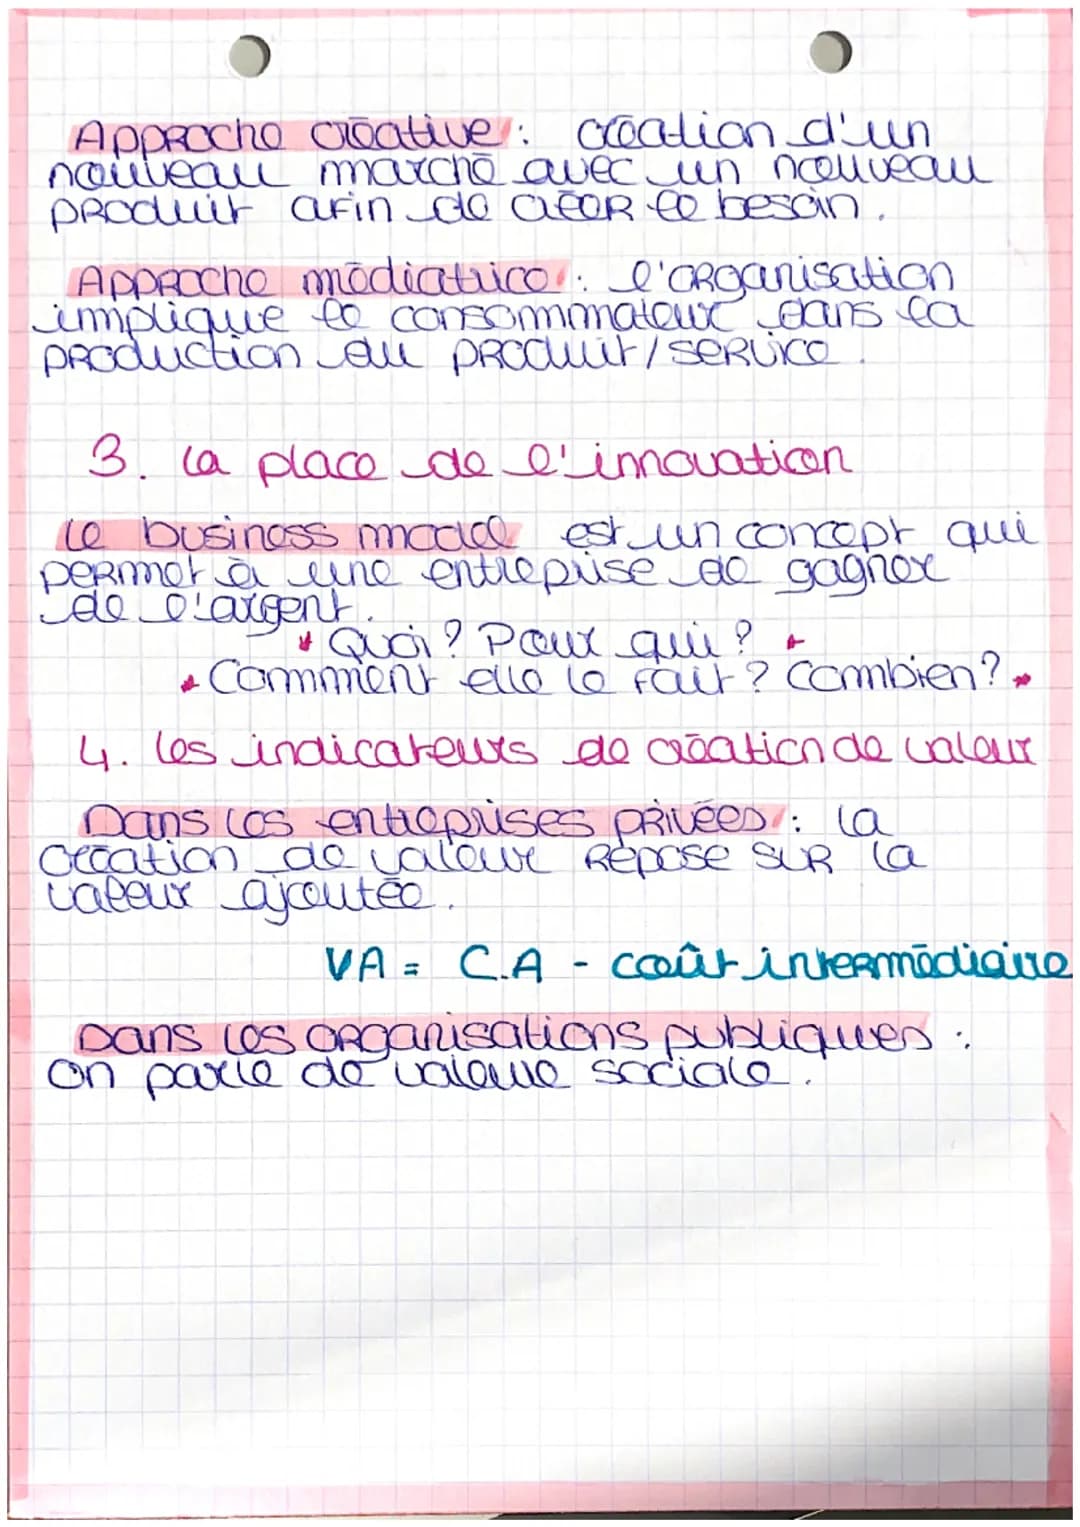 Approche créative : création d'un
nouveau marché avec un nouveau
produit afin de créer le besoin.
Approche médiatrice : l'organisation
implique le consommateur dans la
production du produit/service.
3. La place de l'innovation
Le business model est un concept qui
permet à une entreprise de gagner
de l'argent.
* Quoi ? Pour qui ? *
* Comment elle le fait ? Combien ? *
4. Les indicateurs de création de valeur
Dans les entreprises privées : la
création de valeur repose sur la
valeur ajoutée.
VA = C.A - coût intermédiaire
Dans les organisations publiques :
On parle de valeur sociale.